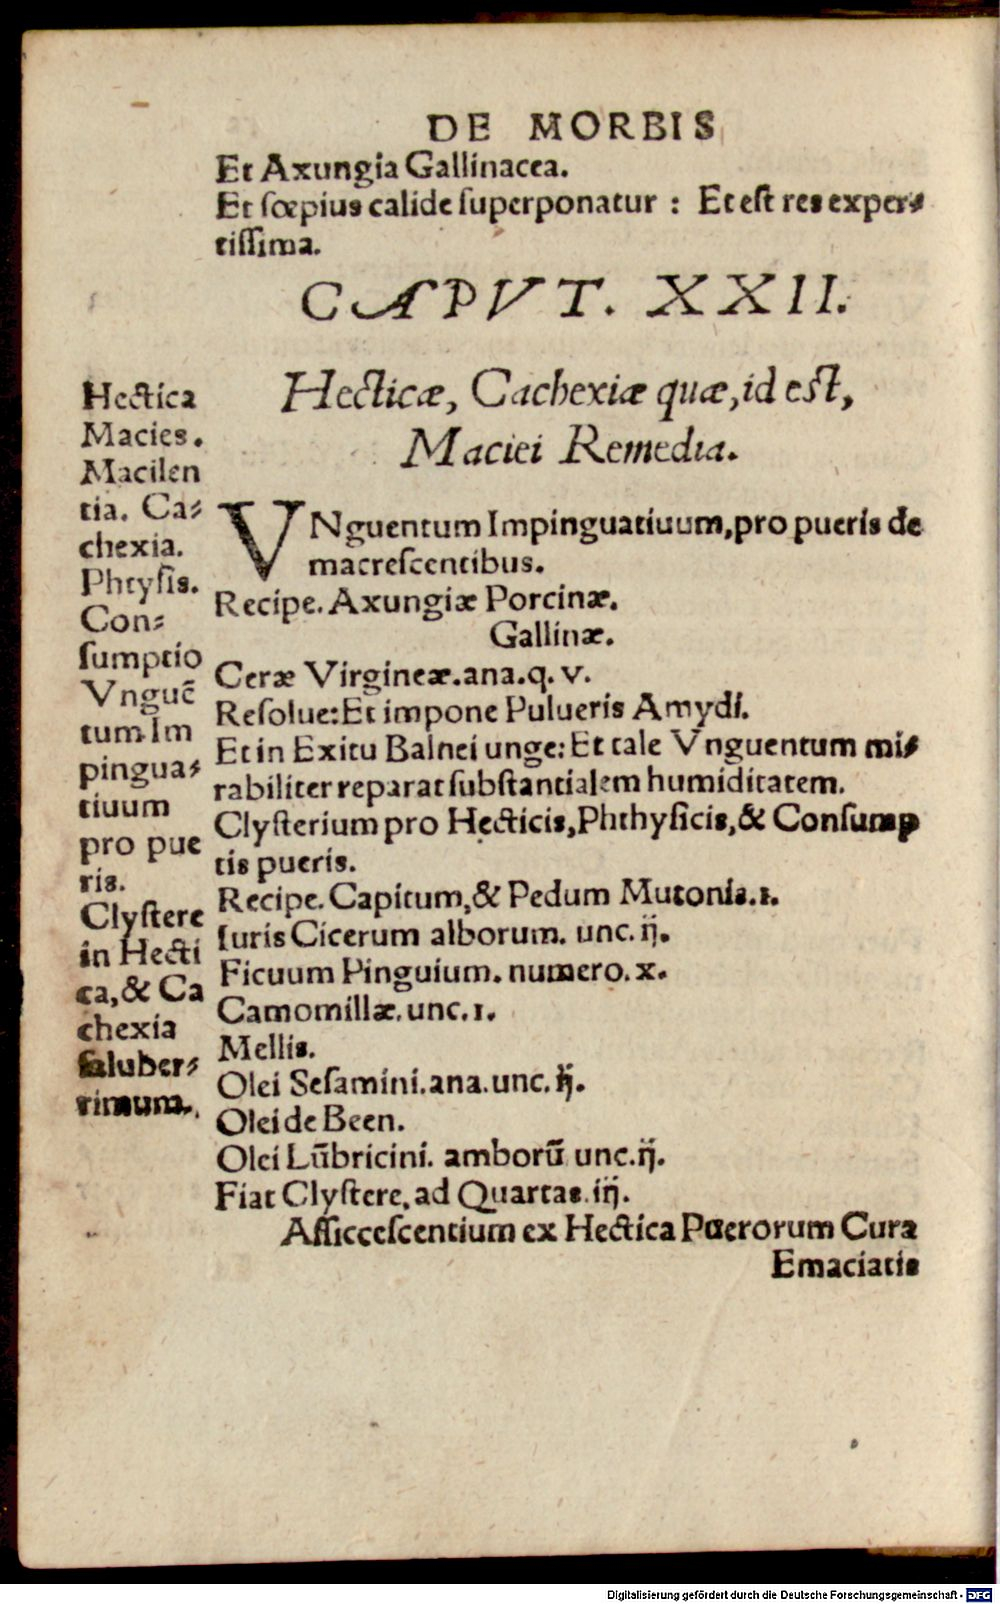 DE MORBIS
Et Axungia Gallinacea.
Et sœpius calide superponatur : Et est res exper⸗
tissima.
CAPVT. XXII.
Hecticæ, Cachexiæ quæ, id est,
Maciei Remedia.
Hectica
Macies.
Macilen
tia. Ca⸗
chexia.
Phtysis.
Con⸗
sumptio
Vnguẽ
tum Im
pingua⸗
tiuum
pro pue
ris.
Clystere
in Hecti
ca, & Ca
chexia
saluber⸗
rimum.
VNguentum Impinguatiuum, pro pueris de
macrescentibus.
Recipe. Axungiæ Porcinæ.
Gallinæ.
Ceræ Virgineæ. ana. q. v.
Resolue: Et impone Pulueris Amydi.
Et in Exitu Balnei unge: Et tale Vnguentum mi⸗
rabiliter reparat substantialem humiditatem.
Clysterium pro Hecticis, Phthysicis, & Consump
tis pueris.
Recipe. Capitum, & Pedum Mutonis. 1.
Iuris Cicerum alborum. unc. ij.
Ficuum Pinguium. numero. x.
Camomillæ. unc. 1.
Mellis.
Olei Sesamini. ana. unc. ij.
Olei de Been.
Olei Lũbricini. amborũ unc. ij.
Fiat Clystere, ad Quartas. iij.
Assiccescentium ex Hectica Puerorum Cura
Emaciatis
Digitalisierung gefördert durch die Deutsche Forschungsgemeinschaft - DFG